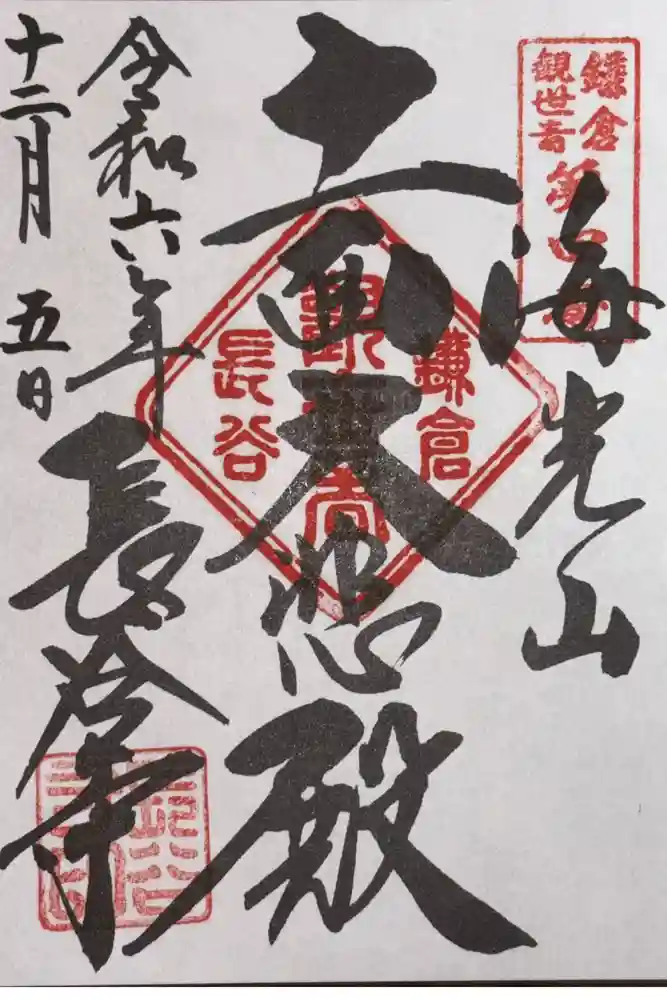 鎌倉
観世音
第四番
海光山
十一面大悲殿
鎌倉
長谷
長谷寺
令和六年
十二月五日